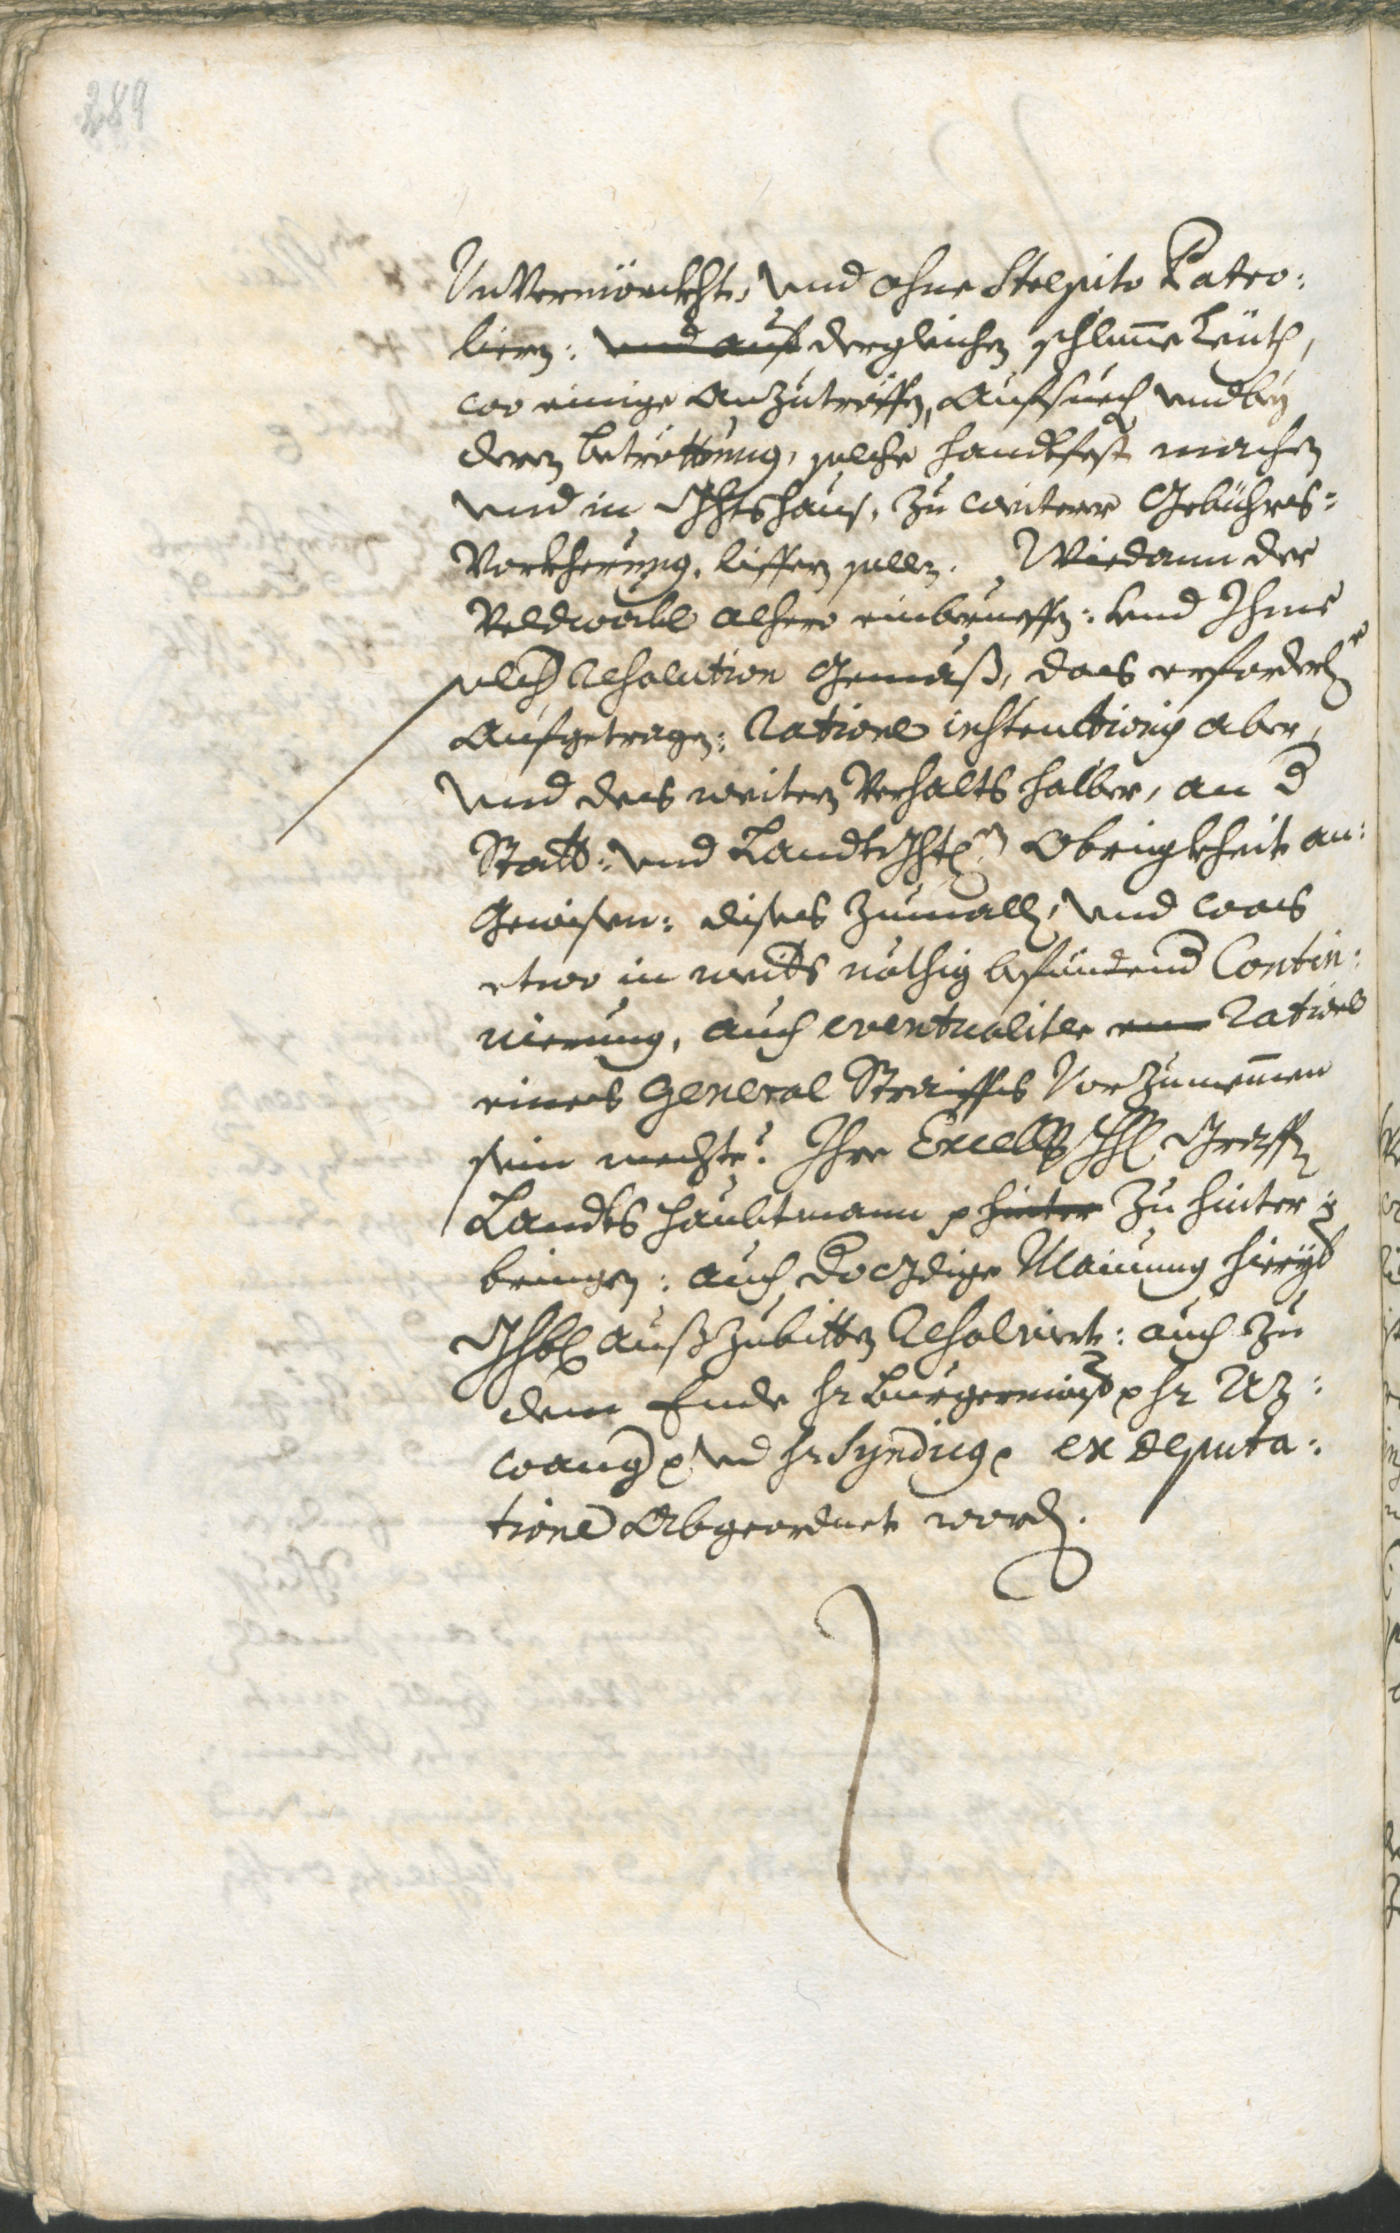 289
Unvermörckht, und ohne Strepito Patro:
liern: und auf dergleichen schlime Leüth,
wo einige anzutröffen, aufsuech und bey
deren betröttung, solche handtfest machen
und in Ghtshaus, zu weiterer Gebührs:
Vorkherung, liffern sollen. Wiedann der
Veldwaibl alhero einberueffen: und Ihme
solch Resolution Gemäß, das erforderliche
aufgetragen: Ratione instruction aber,
und des weitern Verhalts halber, an d
Statt: und Landtghtl Obrigkheit an:
Gewisen: dises zumall, und was
etwo in weits nöthig befündend Contin:
uierung, auch eventualiter Ratione
eines General Straiffs Vorzunemen
sein mechte: Ihr Excell Graffen
Landts haubtmann p hinter zu hinter:
bringen: auch dero Mainung hieryb
außzubitten Resolviert: auch zu
dem Ende hr Burgermaister p hr Az:
wang p und hr Syndicus ex deputa:
tione Abgeordnet worden.